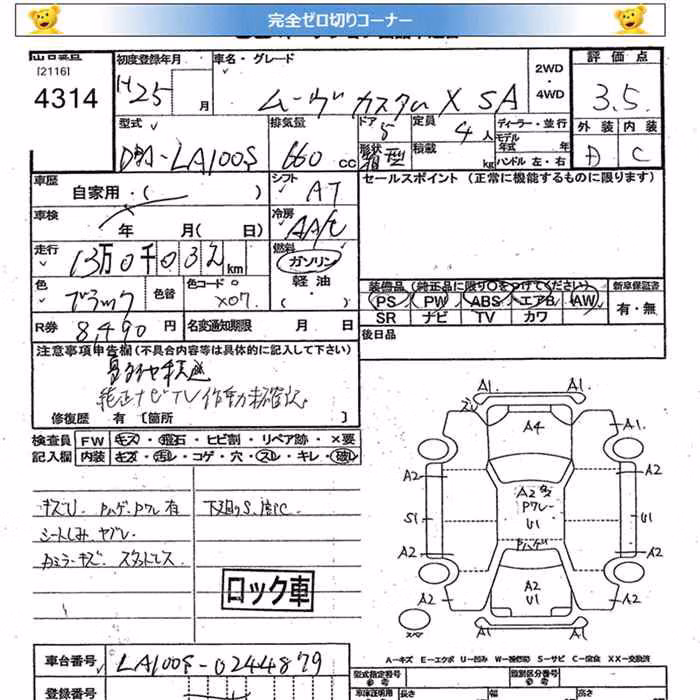 完全ゼロ切りコーナー
[2116]
4314
初度登録年月
H25 月
車名・グレード
ムーヴ カスタム X SA
2WD
・
4WD
評価点
3.5
型式
DBA-LA100S
排気量
660 cc
ドア
5
定員
4人
ディーラー・並行
モデル年式 年
ハンドル 左・右
形状
箱型
積載
kg
外装 内装
A C
車歴
自家用・( )
シフト
AT
セールスポイント (正常に機能するものに限ります)
車検
年 月( 日)
冷房
AA/C
走行
13万0千032km
燃料
ガソリン
軽油
・( )
色
ブラック
色替
色コード
X07
装備品(純正品に限り○をつけてください)
PS PW ABS エアB AW
SR ナビ TV カワ
新車保証書
有・無
R券 8,490 円
名変通知期限 月 日
後日品
注意事項申告欄(不具合内容等は具体的に記入して下さい)
純正ナビTV作動未確認
修復歴 有 [箇所 ]
検査員記入欄
FW キズ・飛石・ヒビ割・リペア跡・×要
内装 キズ・汚れ・コゲ・穴・スレ・キレ・破レ
キズU、Pハゲ、Pワレ 有
シートしみ、ヤブレ
下廻りS、
ロック車
A1 A1
A4
A1
A2 A2
A2
Pワレ
U1
S1 U1
Pハゲ
A2 A2
A2
U1
A2 A2
A1 A1
スペア
A-キズ E-エクボ U-凹み W-補修跡 S-サビ C-腐食 XX-交換済
車台番号 LA100S-0244879
登録番号
型式指定番号
参考
類別区分番号
参考
長さ 幅 高さ